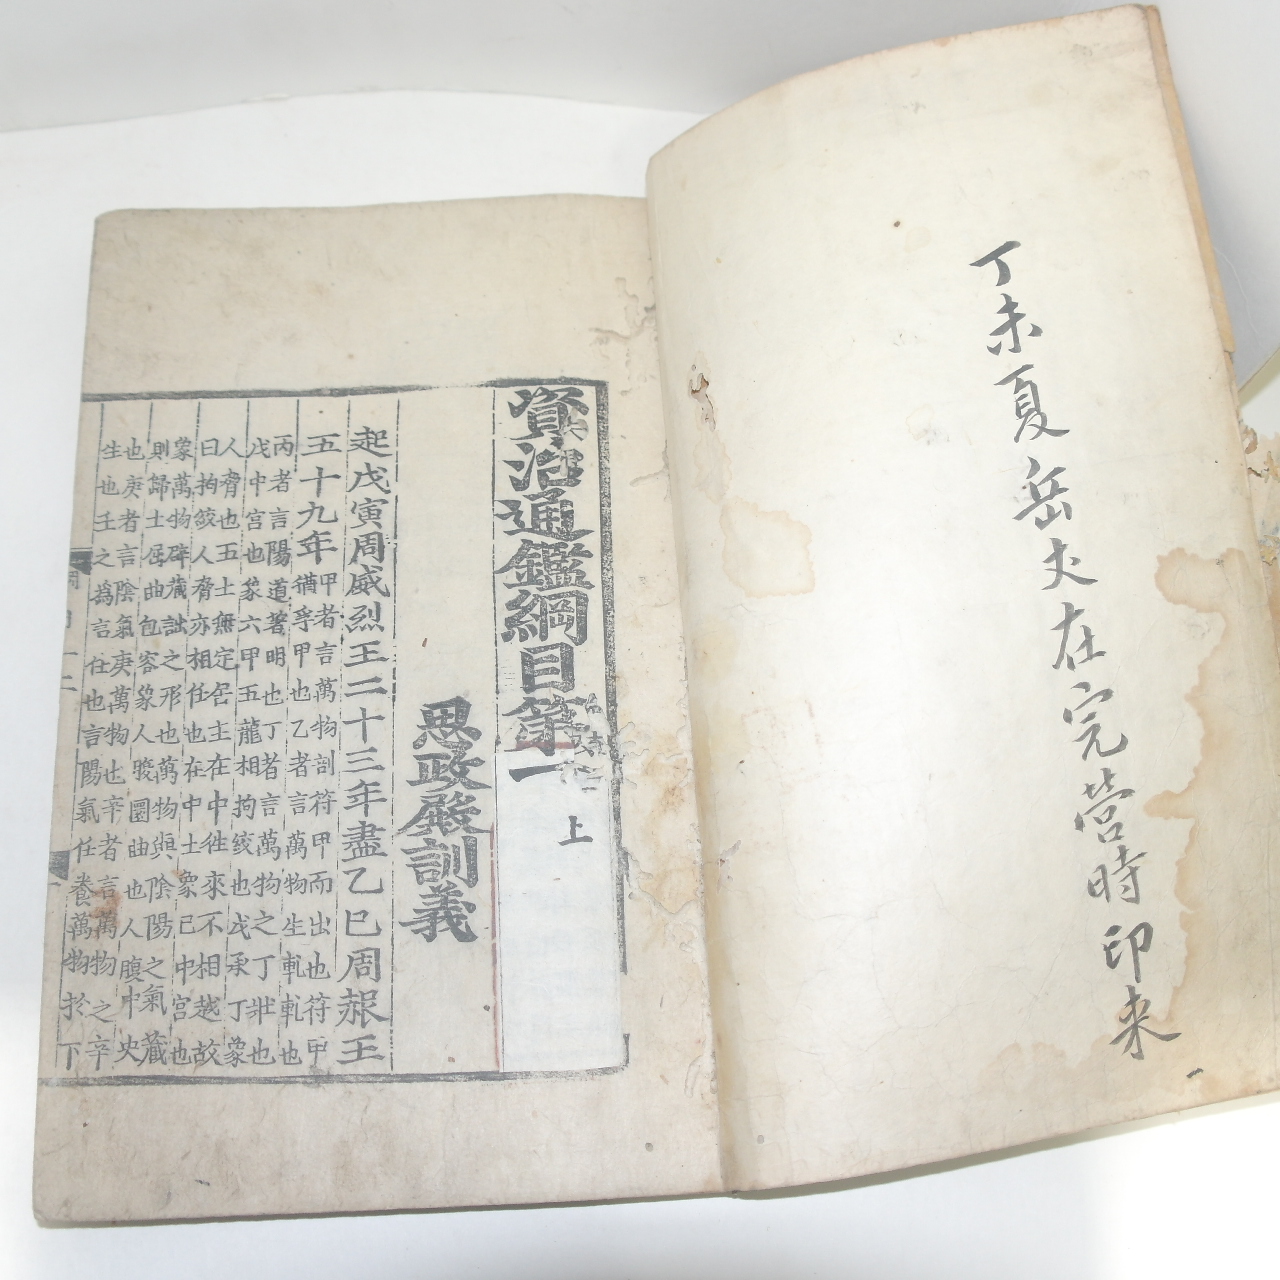 丁未夏岳丈在完營時印来
資治通鑑綱目第一上
思政殿訓義
起戊寅周威烈王二十三年盡乙巳周赧王
五十九年
甲者言萬物剖符甲而出也符甲
猶孚甲也乙者言萬物生軋軋也
丙者言陽道著明也丁者言萬物之丁壯也
戊中宮也象六甲五龍相拘絞也戊承丁象
人脅也五土無定居主在中徃來不相越故
曰拘絞人脅亦相任也在中士象巳中宮也
象萬物辟藏詘之形也萬物與陰陽之氣藏
則歸土屈曲包容象人腹圜曲也人腹中央
也庚者言陰氣庚萬物也辛者言萬物之辛
生也壬之爲言任也言陽氣任養萬物於下